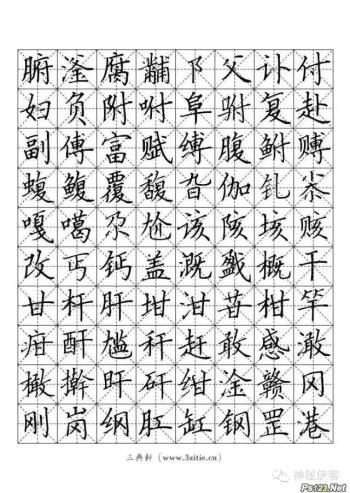 腑滏腐黼阝父讣付
妇负附咐阜驸复赴
副傅富赋缚腹鲋赙
蝮鳆覆馥旮伽钆尜
嘎噶尕尬该陔垓赅
改丐钙盖溉戤概干
甘杆肝坩泔苷柑竿
疳酐尴秆赶敢感澉
橄擀旰矸绀淦赣冈
刚岗纲肛缸钢罡港
三典轩（www.3zitie.cn）
神秘侠客
Ps123.Net